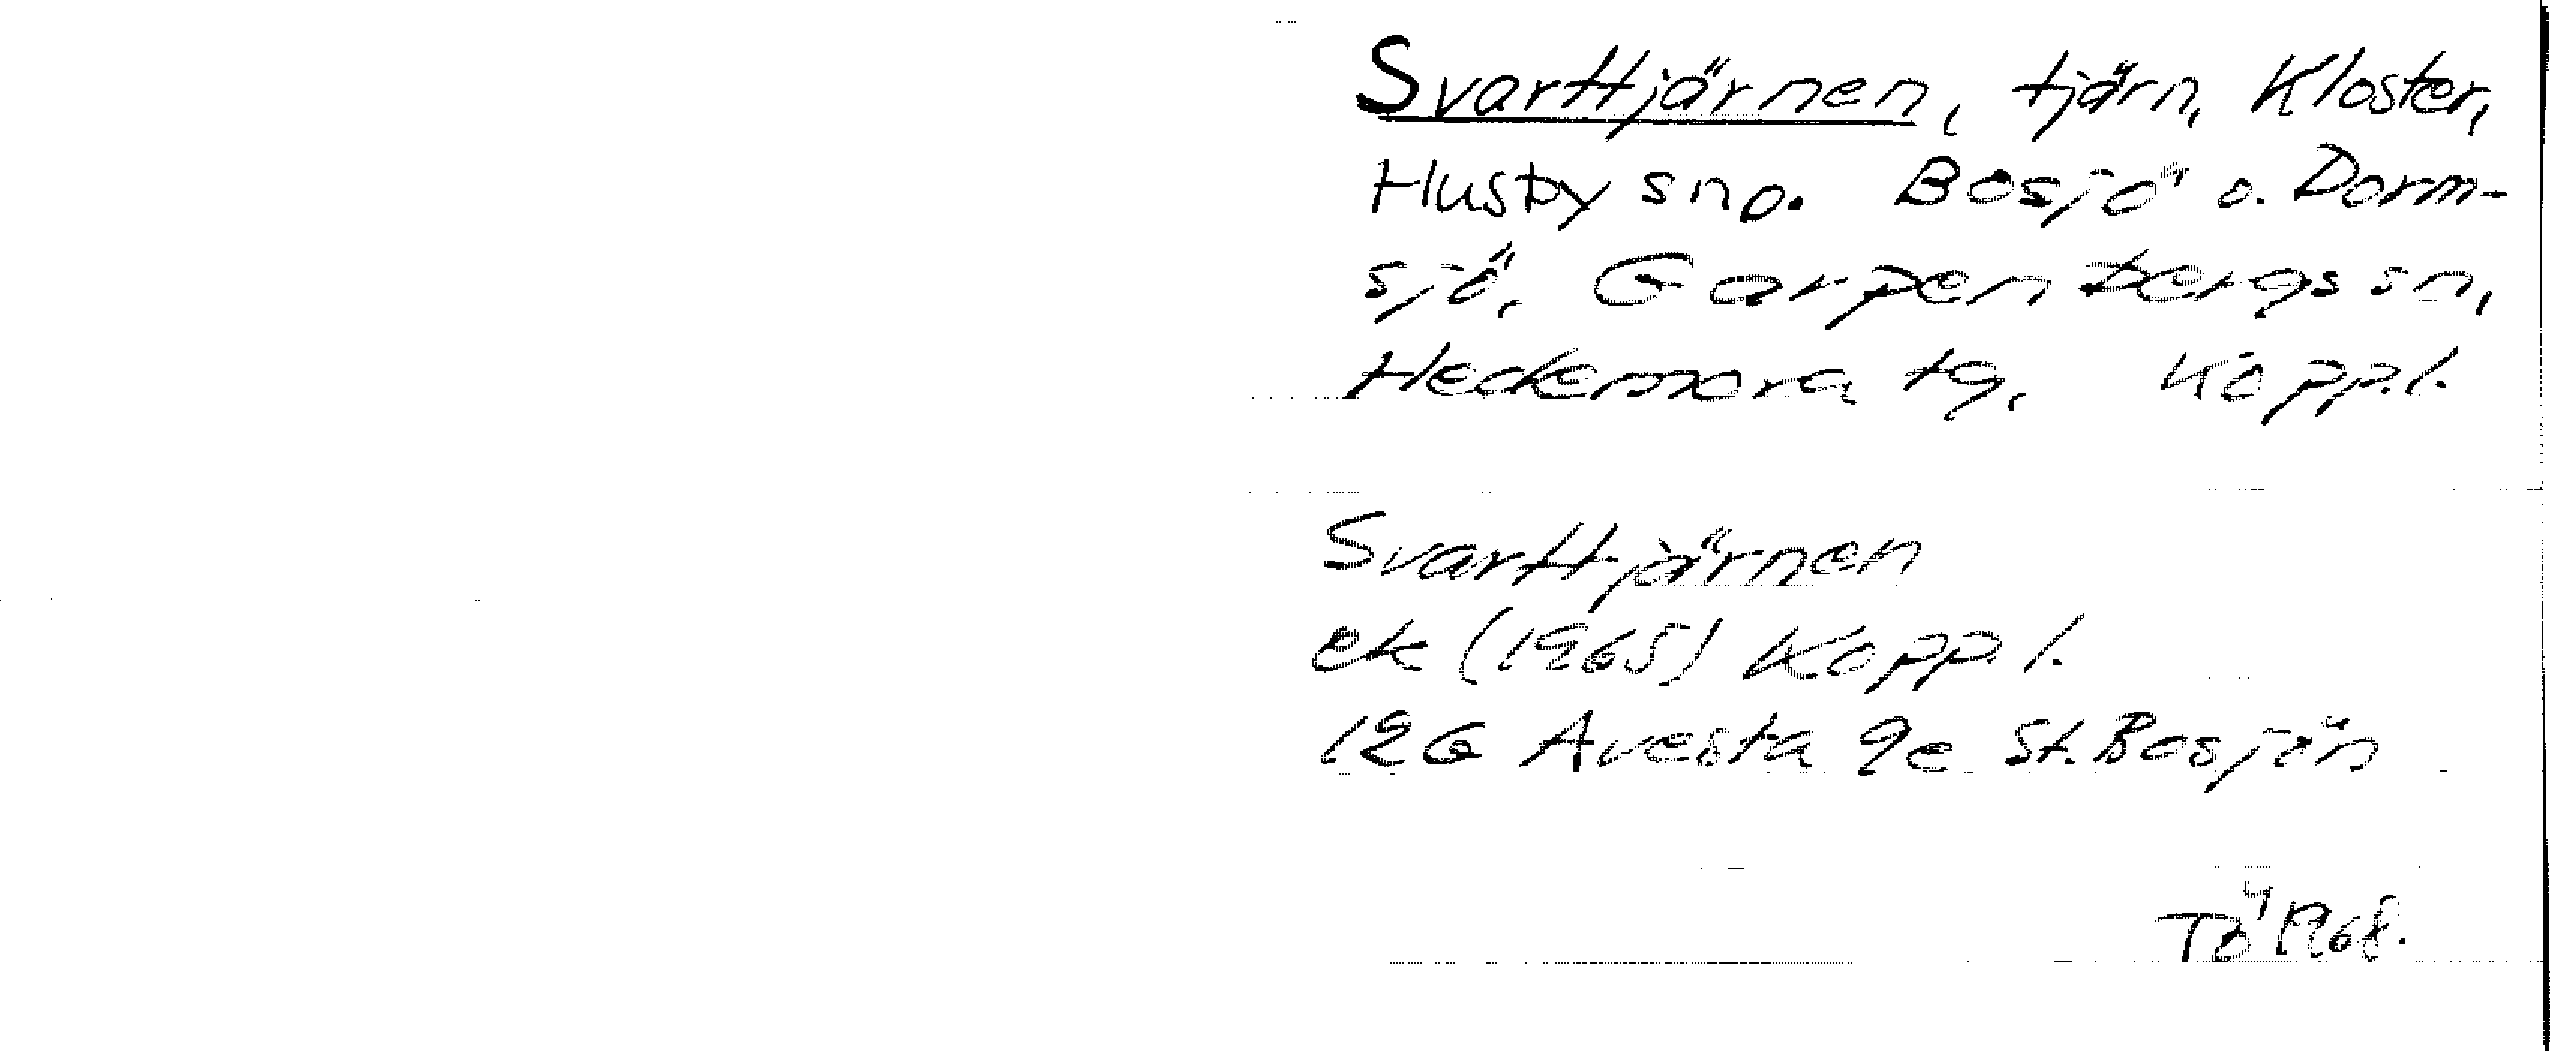 Svarttjärnen, tjärn, Kloster,
Husby sn o. Bosjö o. Dorm-
sjö, Garpenbergs sn,
Hedemora tg, Kopp.l.
Svarttjärnen
ek (1965) Kopp l.
12G Avesta 9e St. Bosjön
TÖ 1968.